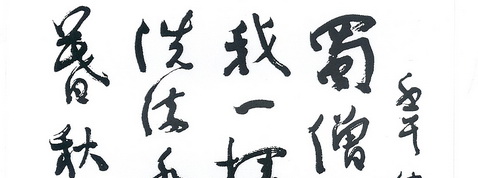 蜀僧
我一揮
洗流
暮秋